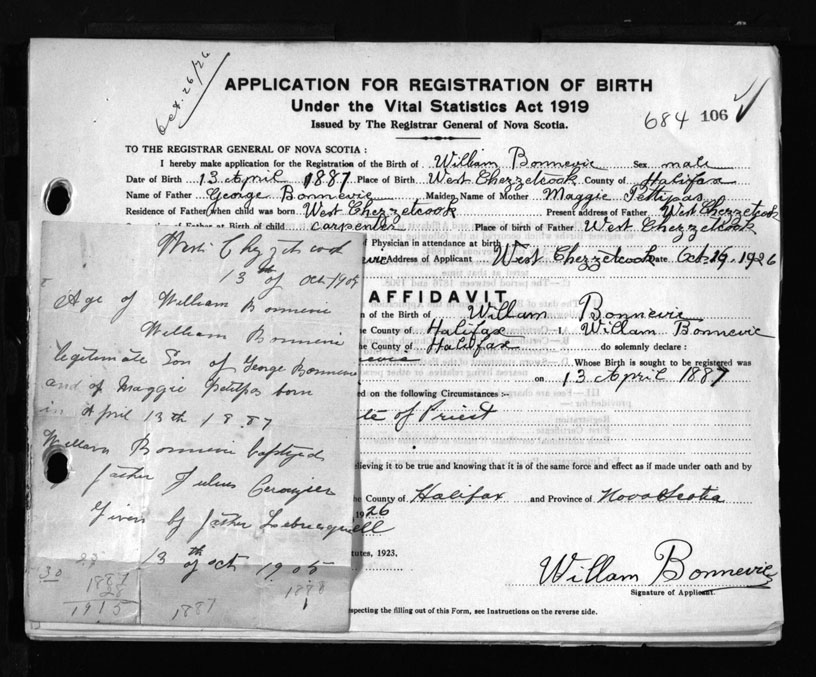 Oct. 26/26
APPLICATION FOR REGISTRATION OF BIRTH
Under the Vital Statistics Act 1919
Issued by The Registrar General of Nova Scotia.
684 106
TO THE REGISTRAR GENERAL OF NOVA SCOTIA :
I hereby make application for the Registration of the Birth of William Bonnevie Sex male
Date of Birth 13 April 1887 Place of Birth West Chezzetcook County of Halifax
Name of Father George Bonnevie Maiden Name of Mother Maggie Pettipas
Residence of Father when child was born West Chezzetcook Present address of Father West Chezzetcook
of Father at Birth of child carpenter Place of birth of Father West Chezzetcook
of Physician in attendance at birth
Address of Applicant West Chezzetcook Date Oct 19, 1926
AFFIDAVIT
n of the Birth of William Bonnevie
e County of Halifax I William Bonnevie
he County of Halifax do solemnly declare :
Whose Birth is sought to be registered was
on 13 April 1887
ed on the following Circumstances :-
te of Priest
elieving it to be true and knowing that it is of the same force and effect as if made under oath and by
he County of Halifax and Province of Nova Scotia
1926
tutes, 1923.
Willam Bonnevie
Signature of Applicant.
specting the filling out of this Form, see Instructions on the reverse side.
West Chezzetcook
13th of Oct 1905
Age of William Bonnevie
William Bonnevie
legitimate Son of George Bonnevie
and of Maggie Petitpas born
in April 13th 1887
William Bonnevie baptized
father Julius
Given by father
13th of Oct 1905
30
1887
28
1915
1887